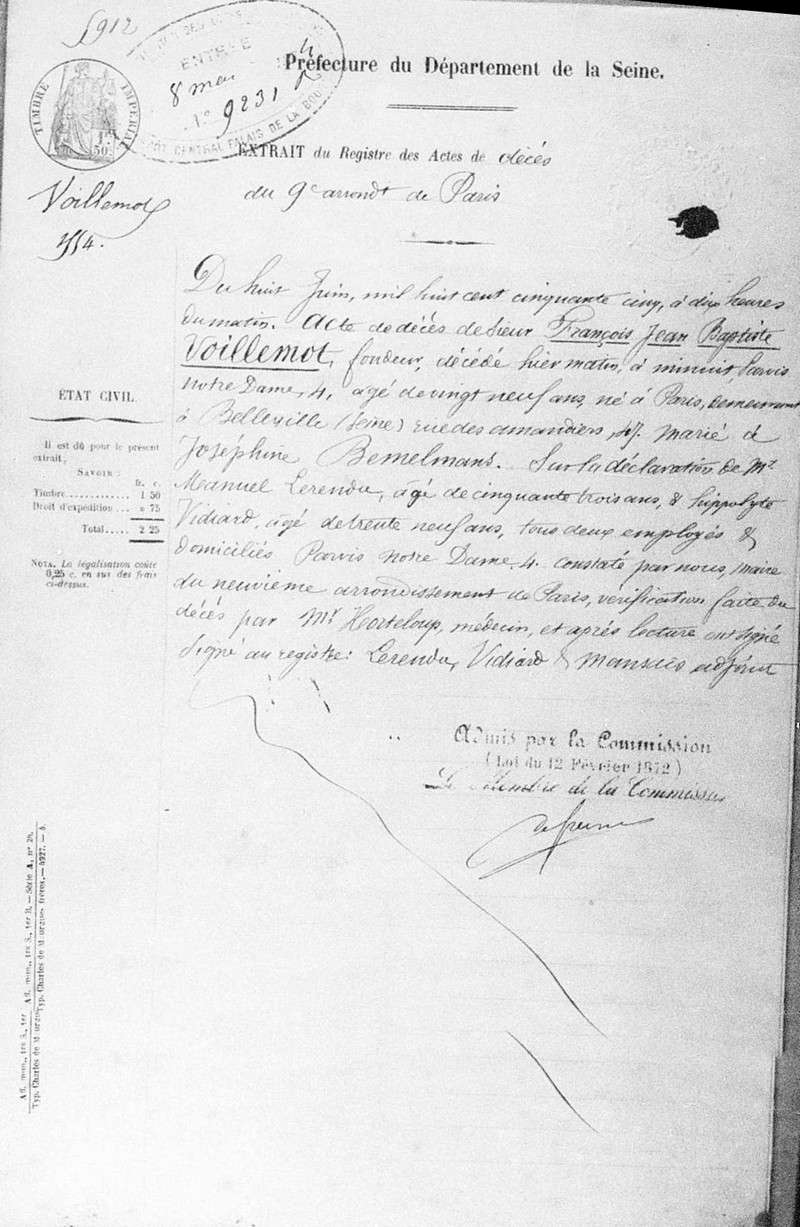 5912
ENTRÉE
8 mai
9231
DÉPÔT CENTRAL PALAIS DE LA BOU
TIMBRE IMPÉRIAL
1F
50
Préfecture du Département de la Seine.
EXTRAIT du Registre des Actes de décés
du 9e arrondt de Paris
Voillemot
Du huit Juin, mil huit cent cinquante cinq, à dix heures
du matin. Acte de décés de Sieur François Jean Baptiste
Voillemot, fondeur, décédé hier matin, à minuit, Parvis
Notre Dame, 4, agé de vingt neuf ans, né à Paris, demeurant
à Belleville (Seine) rue des amandiers, marié à
Joséphine Bemelmans. Sur la déclaration de Mr
Manuel Lerendu, agé de cinquante trois ans, & hippolyte
Vidiard, agé de trente neuf ans, tous deux employés &
domiciliés Parvis Notre Dame, 4. constaté par nous, maire
du neuvième arrondissement de Paris, vérification faite du
décés par Mr Horteloup, médecin, et aprés lecture ont signé
Signé au registre: Lerendu, Vidiard & adjoint
ÉTAT CIVIL.
Il est dû pour le présent
extrait;
SAVOIR:
fr. c.
Timbre............ 1 50
Droit d'expédition... » 75
Total..... 2 25
NOTA. La légalisation coûte
0,25 c. en sus des frais
ci-dessus.
Admis par la Commission
(Loi du 12 Février 1872)
Le Membre de la Commission
Typ. Charles de Mourgues frères. — 4927. — 5.